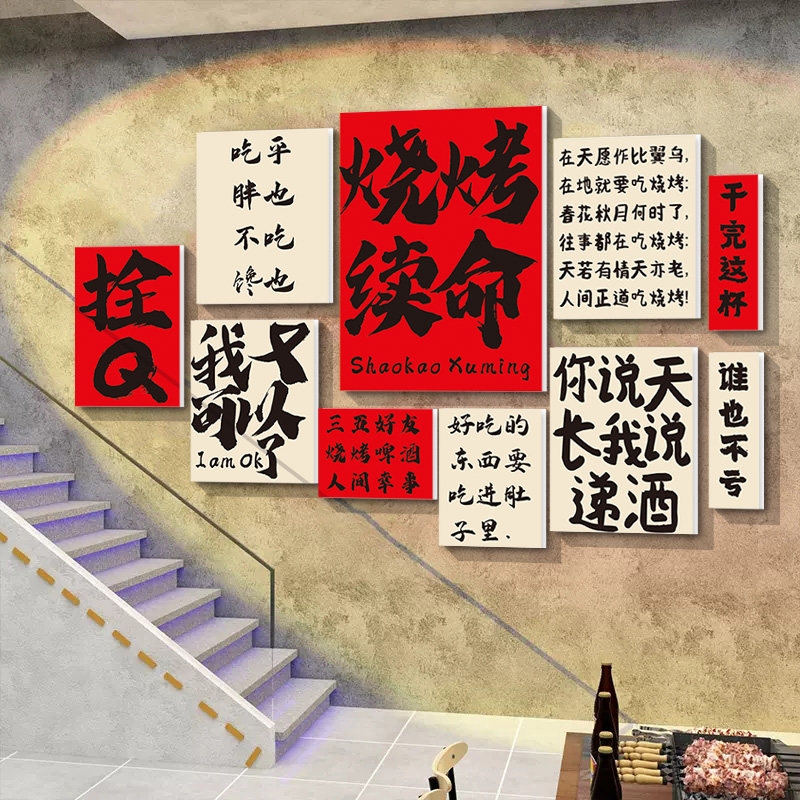 拴
Q
吃乎
胖也
不吃
馋也
我又
可以了
Iam Ok
烧烤
续命
Shaokao Xuming
三五好友
烧烤啤酒
人间幸事
好吃的
东西要
吃进肚
子里.
在天愿作比翼鸟,
在地就要吃烧烤:
春花秋月何时了,
往事都在吃烧烤:
天若有情天亦老,
人间正道吃烧烤!
你说天
长我说
递酒
干完这杯
谁也不亏